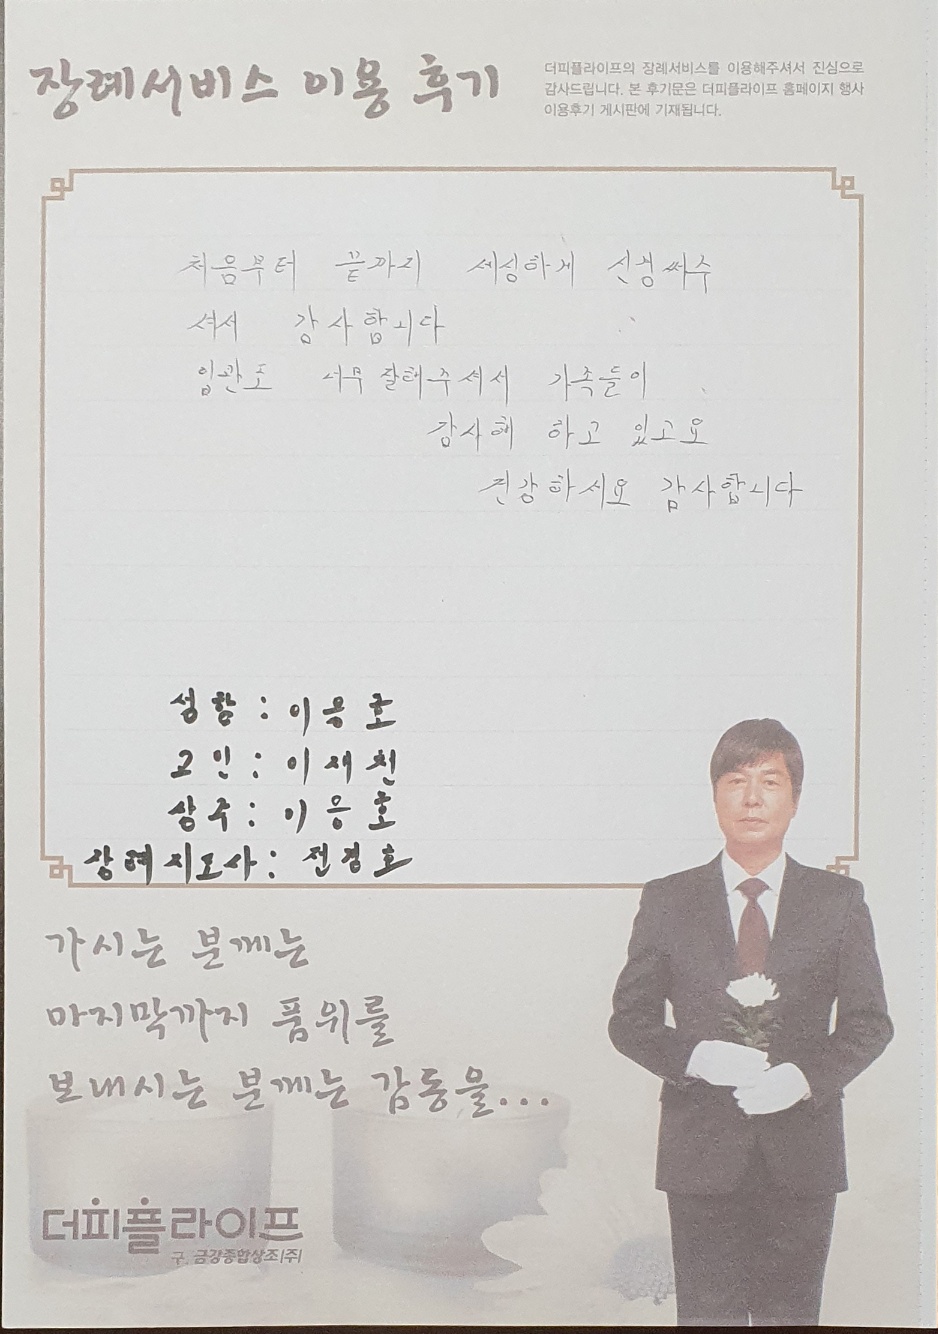 장례서비스 이용 후기
더피플라이프의 장례서비스를 이용해주셔서 진심으로
감사드립니다. 본 후기문은 더피플라이프 홈페이지 행사
이용후기 게시판에 기재됩니다.
처음부터 끝까지 세심하게 신경써주
셔서 감사합니다
입관도 너무 잘해주셔서 가족들이
감사해 하고 있고요
건강하세요 감사합니다
성함 : 이응호
고인 : 이재천
상주 : 이응호
장례지도사 : 전경호
가시는 분께는
마지막까지 품위를
보내시는 분께는 감동을...
더피플라이프
구. 금강종합상조(주)